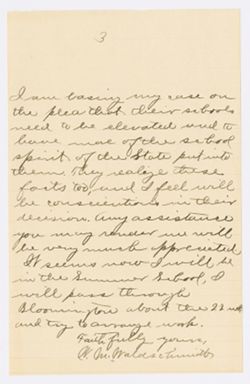 3
I am basing my case on
the plea that their schools
need to be elevated and to
have more of the school
spirit of the State put into
them. They realize these
facts too, and I feel will
be conscientious in their
decision. Any assistance
you may render me will
be very much appreciated
It seems now I will be
in the Summer School, I
will pass through
Bloomington about the 22 and
and try to arrange work.
Faithfully yours,
W. M. Waldschmidt